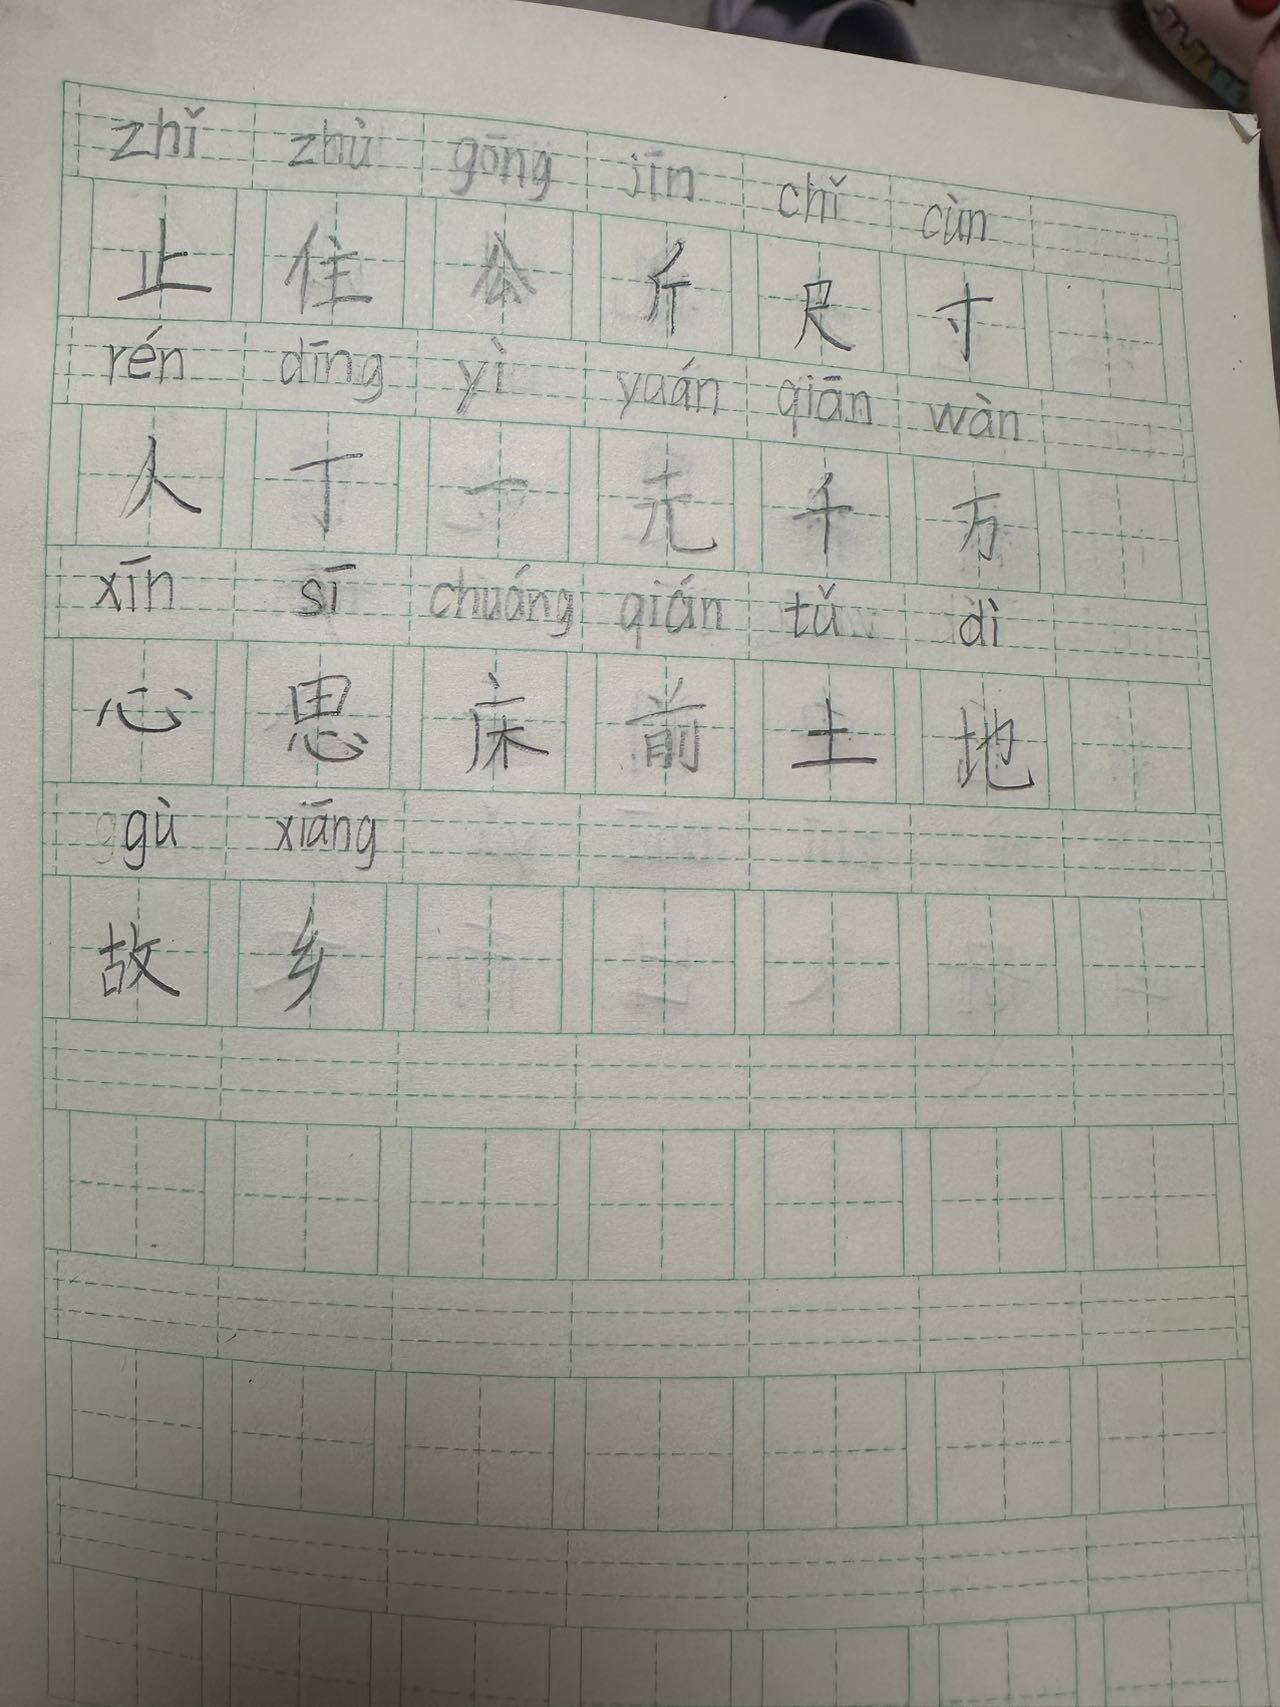 zhǐ zhù gōng jīn chǐ cùn
止 住 公 斤 尺 寸
rén dīng yì yuán qiān wàn
人 丁 一 元 千 万
xīn sī chuáng qián tǔ dì
心 思 床 前 土 地
gù xiāng
故 乡